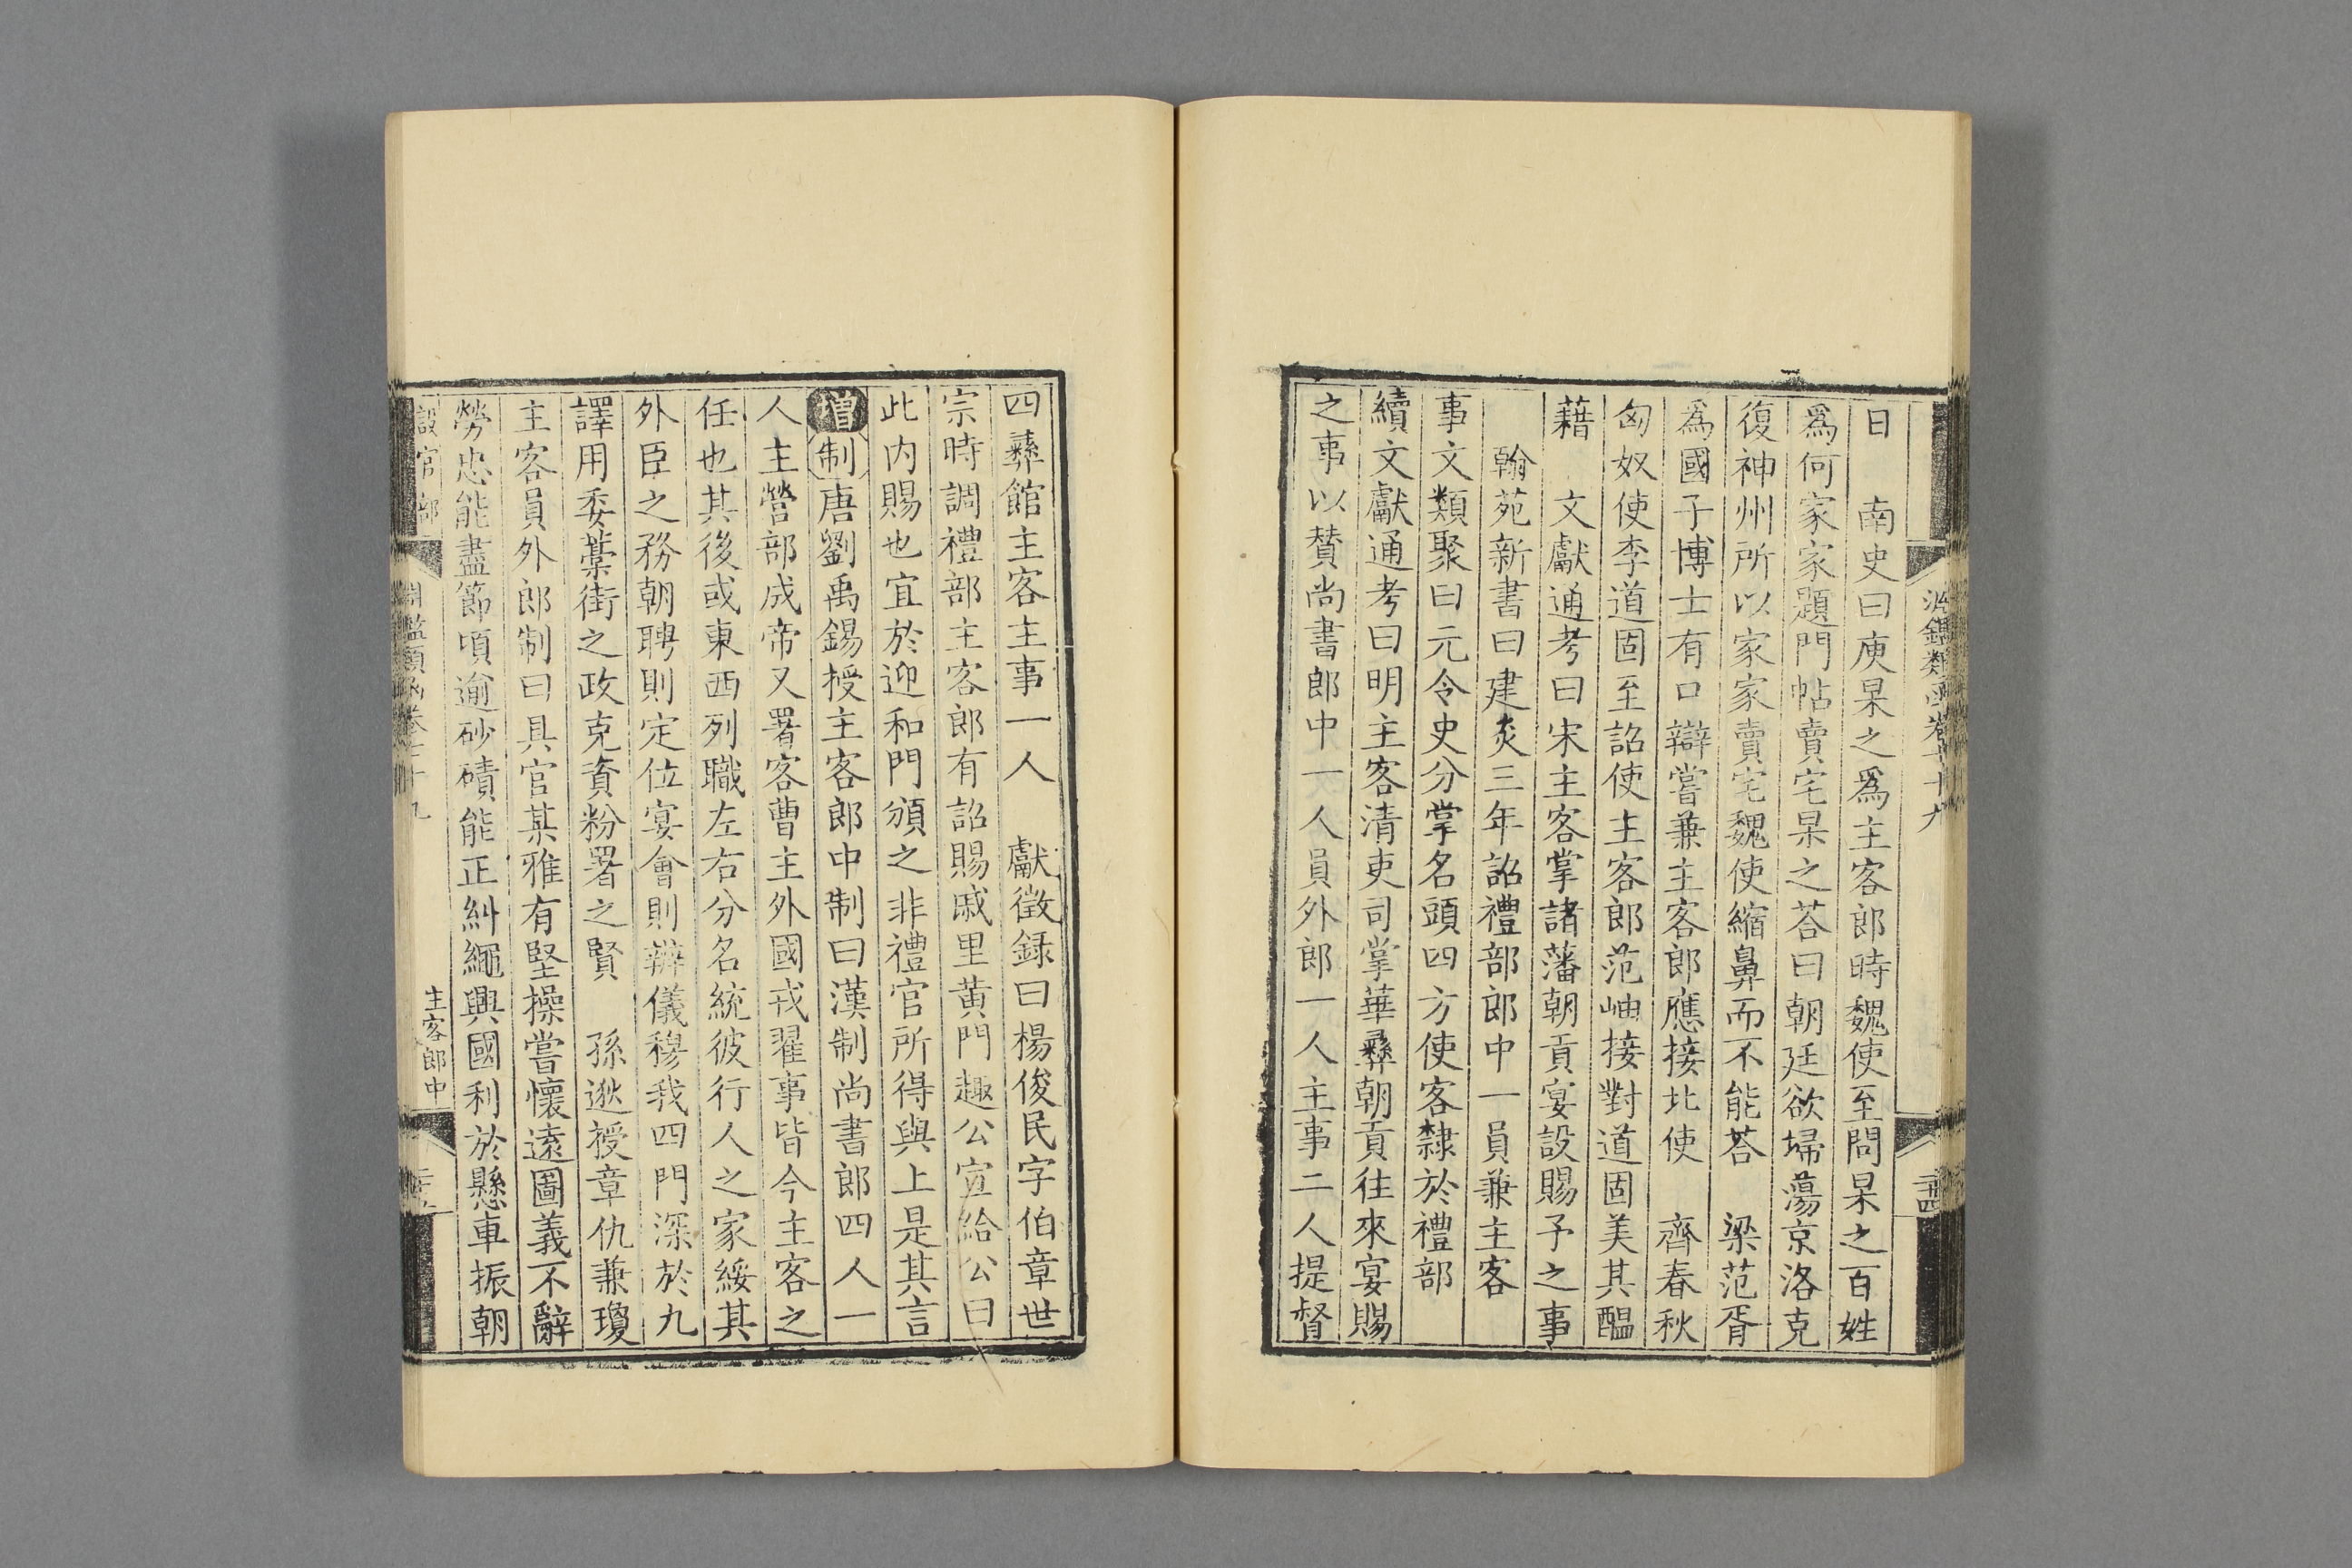 日　南史曰庾杲之爲主客郎時魏使至問杲之百姓
爲何家家題門帖賣宅杲之荅曰朝廷欲埽蕩京洛克
復神州所以家家賣宅魏使縮鼻而不能荅　梁范胥
爲國子博士有口辯嘗兼主客郎應接北使　齊春秋
匈奴使李道固至詔使主客郎范岫接對道固美其醞
藉　文獻通考曰宋主客掌諸藩朝貢宴設賜予之事
翰苑新書曰建炎三年詔禮部郎中一員兼主客
事文類聚曰元令史分掌名頭四方使客隸於禮部
續文獻通考曰明主客清吏司掌華彝朝貢往來宴賜
之事以贊尚書郎中一人員外郎一人主事二人提督
四彝館主客主事一人　獻徵録曰楊俊民字伯章世
宗時調禮部主客郎有詔賜戚里黄門趣公宣給公曰
此内賜也宜於迎和門頒之非禮官所得與上是其言
增制唐劉禹錫授主客郎中制曰漢制尚書郎四人一
人主營部成帝又署客曹主外國戎翟事皆今主客之
任也其後或東西列職左右分名統彼行人之家綏其
外臣之務朝聘則定位宴會則辨儀穆我四門深於九
譯用委藁街之政克資粉署之賢　孫逖授章仇兼瓊
主客員外郎制曰具官某雅有堅操嘗懷遠圖義不辭
勞忠能盡節頃逾砂磧能正糾繩興國利於懸車振朝
設官部
淵鑑類函卷七十九
主客郎中